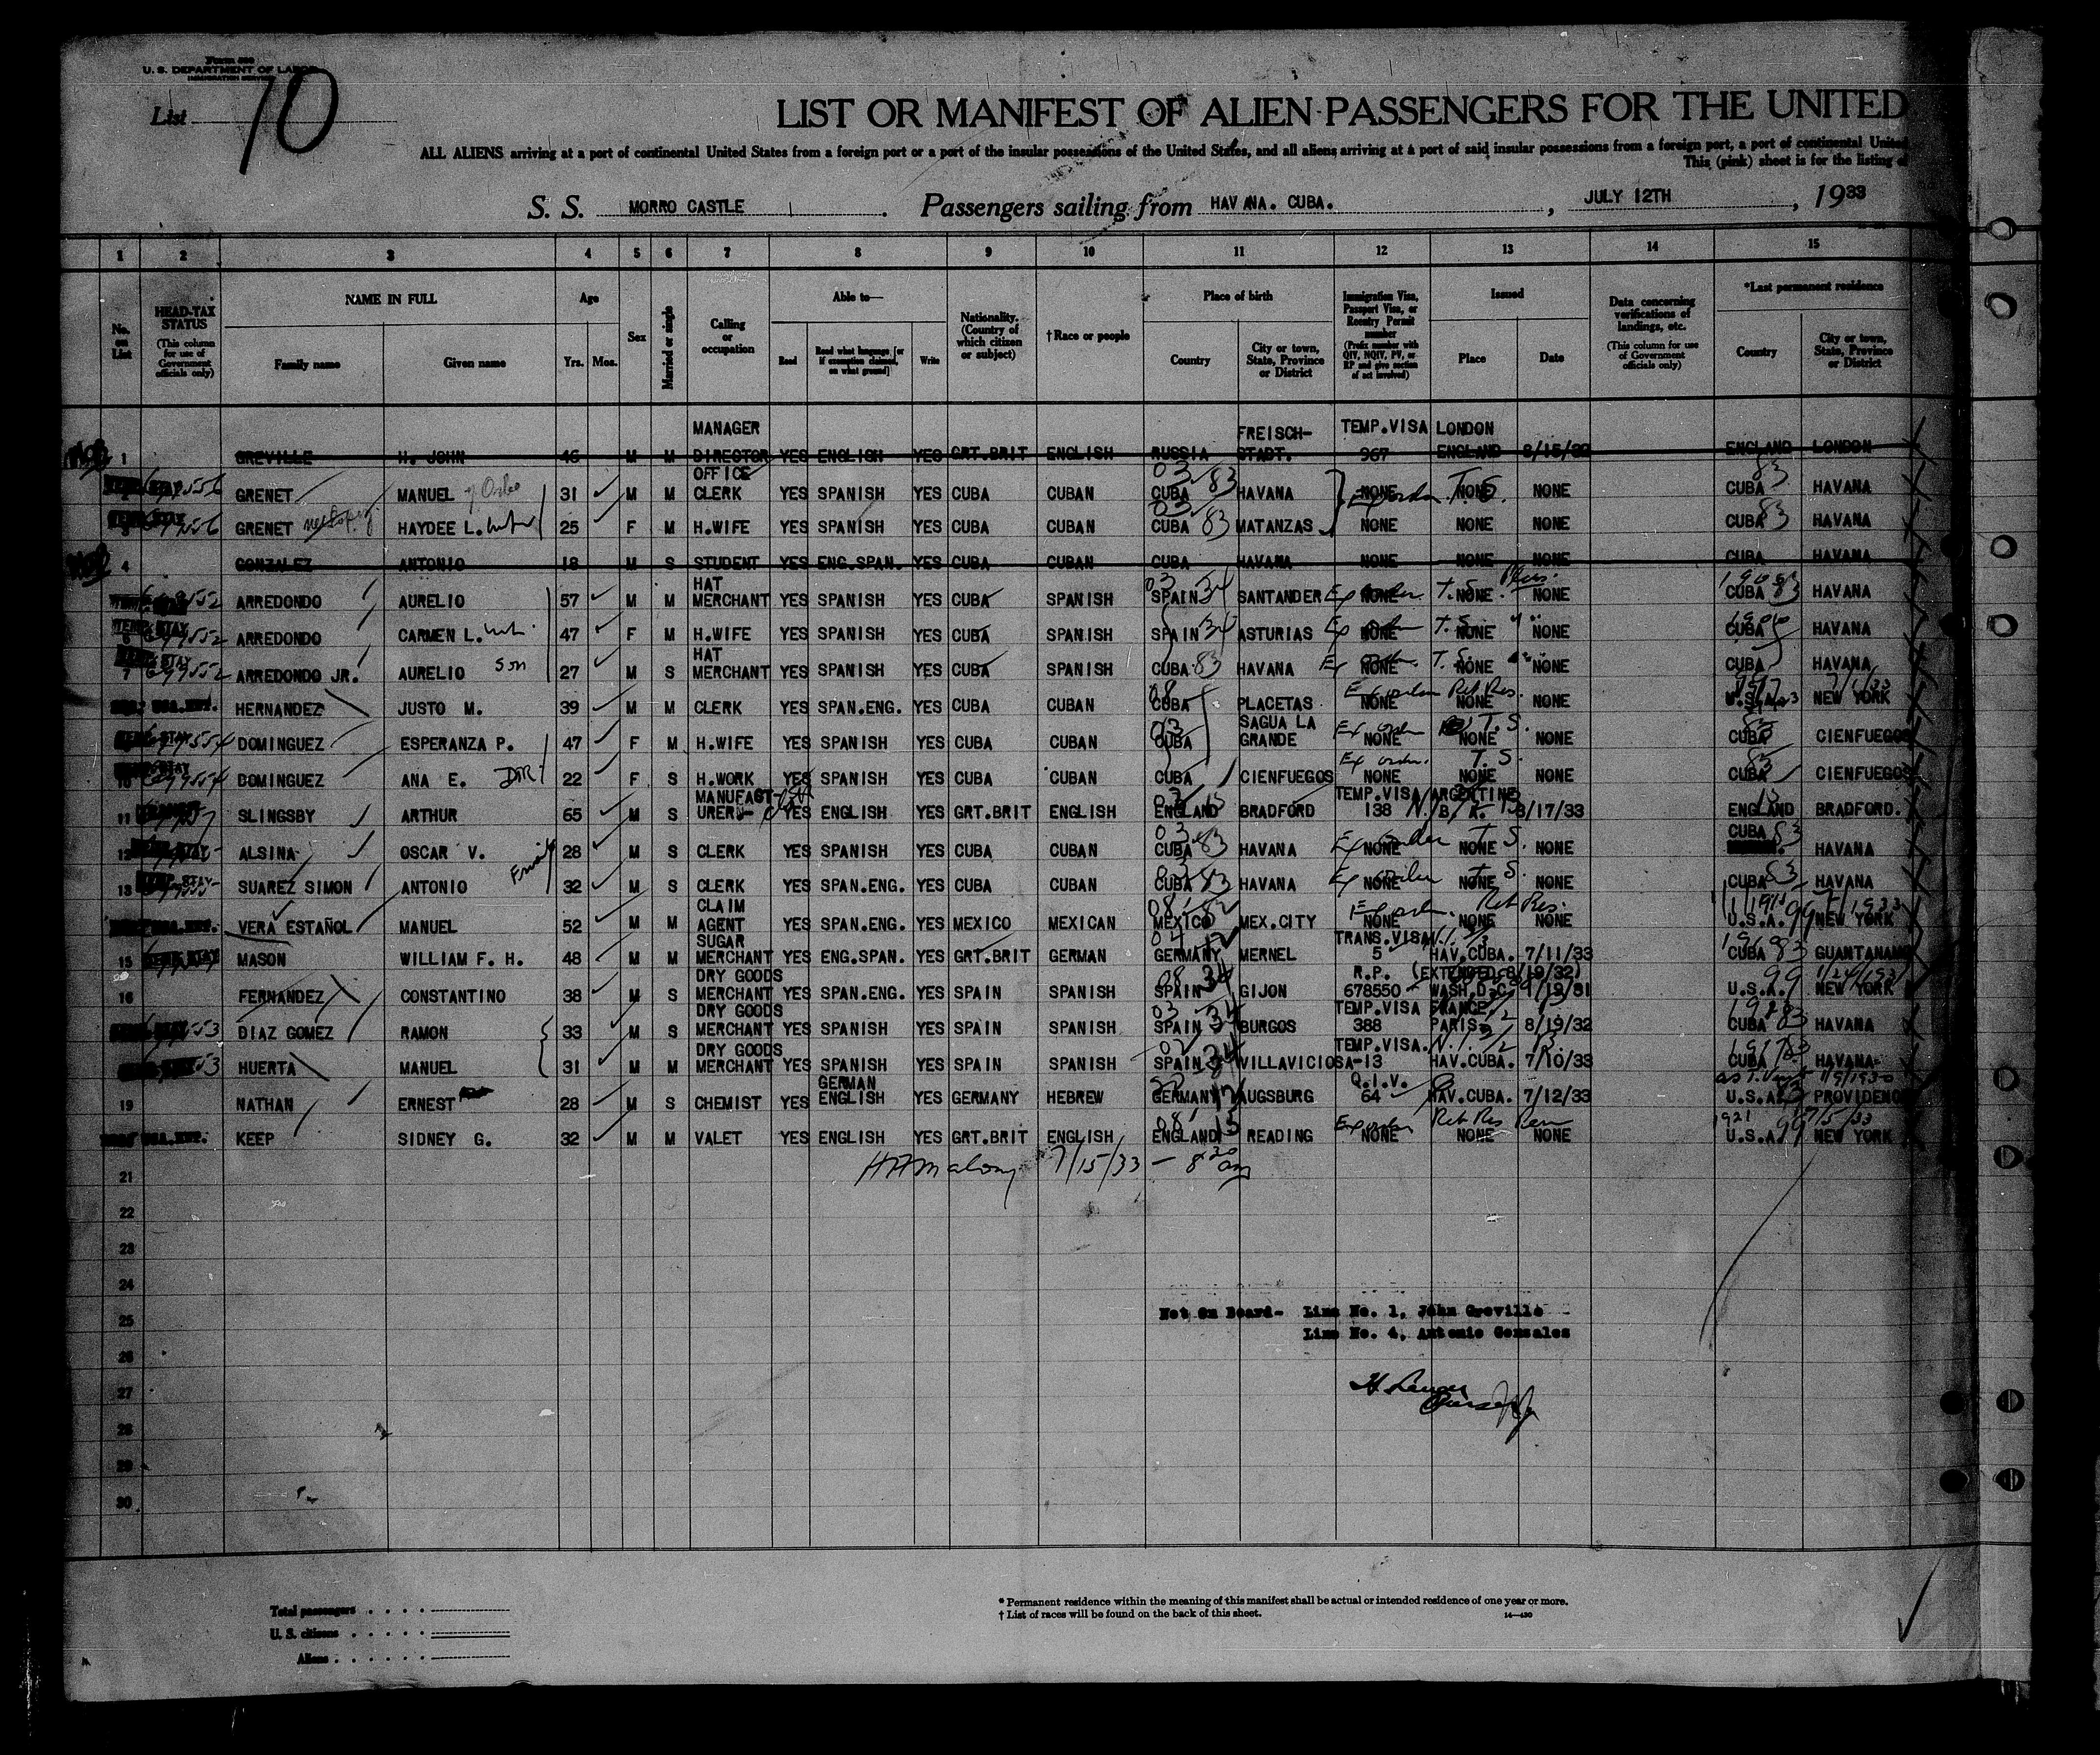 Form 500
U. S. DEPARTMENT OF LABOR
IMMIGRATION SERVICE
List 10
LIST OR MANIFEST OF ALIEN PASSENGERS FOR THE UNITED
ALL ALIENS arriving at a port of continental United States from a foreign port or a port of the insular possessions of the United States, and all aliens arriving at a port of said insular possessions from a foreign port, a port of continental United
This (pink) sheet is for the listing of
S. S. MORRO CASTLE. Passengers sailing from HAVANA. CUBA., JULY 12TH, 1933
1 2 3 4 5 6 7 8 9 10 11 12 13 14 15
No. on List
HEAD-TAX STATUS (This column for use of Government officials only)
NAME IN FULL Family name Given name
Age Yrs. Mos.
Sex
Married or single
Calling or occupation
Able to— Read Read what language [or if exemption claimed, on what ground] Write
Nationality. (Country of which citizen or subject)
† Race or people
Place of birth Country City or town, State, Province or District
Immigration Visa, Passport Visa, or Reentry Permit number (Prefix number with QIV, NQIV, PV, or RP and give section of act involved)
Issued Place Date
Data concerning verifications of landings, etc. (This column for use of Government officials only)
*Last permanent residence Country City or town, State, Province or District
1 GREVILLE H. JOHN 46 M M MANAGER DIRECTOR YES ENGLISH YES GRT.BRIT ENGLISH RUSSIA FREISCH-STADT. TEMP.VISA 967 LONDON ENGLAND 8/15/32 ENGLAND LONDON
GRENET MANUEL 31 M M OFFICE CLERK YES SPANISH YES CUBA CUBAN CUBA 03 83 HAVANA NONE NONE T.S. NONE CUBA 83 HAVANA
GRENET HAYDEE L. 25 F M H.WIFE YES SPANISH YES CUBA CUBAN CUBA 03 83 MATANZAS NONE NONE NONE CUBA 83 HAVANA
4 GONZALEZ ANTONIO 18 M S STUDENT YES ENG.SPAN. YES CUBA CUBAN CUBA HAVANA NONE NONE NONE CUBA HAVANA
ARREDONDO AURELIO 57 M M HAT MERCHANT YES SPANISH YES CUBA SPANISH SPAIN 03 34 SANTANDER NONE T. S. NONE NONE CUBA 83 HAVANA
6 ARREDONDO CARMEN L. 47 F M H.WIFE YES SPANISH YES CUBA SPANISH SPAIN 34 ASTURIAS NONE T. S. NONE NONE CUBA HAVANA
7 ARREDONDO JR. AURELIO Son 27 M S HAT MERCHANT YES SPANISH YES CUBA SPANISH CUBA 83 HAVANA NONE T. S. NONE NONE CUBA HAVANA
HERNANDEZ JUSTO M. 39 M M CLERK YES SPAN.ENG. YES CUBA CUBAN CUBA 08 PLACETAS NONE Ret Res. NONE NONE U.S.A. NEW YORK
DOMINGUEZ ESPERANZA P. 47 F M H.WIFE YES SPANISH YES CUBA CUBAN CUBA 03 SAGUA LA GRANDE NONE T. S. NONE NONE CUBA 83 CIENFUEGOS
10 DOMINGUEZ ANA E. DTR 22 F S H.WORK YES SPANISH YES CUBA CUBAN CUBA CIENFUEGOS NONE T. S. NONE NONE CUBA 83 CIENFUEGOS
11 SLINGSBY ARTHUR 65 M S MANUFACT-URER YES ENGLISH YES GRT.BRIT ENGLISH ENGLAND BRADFORD TEMP.VISA 138 ARGENTINE B. A. 3/17/33 ENGLAND 15 BRADFORD.
12 ALSINA OSCAR V. 28 M S CLERK YES SPANISH YES CUBA CUBAN CUBA 03 83 HAVANA NONE T S. NONE NONE CUBA 83 HAVANA
13 SUAREZ SIMON ANTONIO 32 M S CLERK YES SPAN.ENG. YES CUBA CUBAN CUBA 03 83 HAVANA NONE T S. NONE NONE CUBA 83 HAVANA
VERA ESTAÑOL MANUEL 52 M M CLAIM AGENT YES SPAN.ENG. YES MEXICO MEXICAN MEXICO 08 82 MEX.CITY NONE Ret Res. NONE NONE U.S.A. 99 NEW YORK
15 MASON WILLIAM F. H. 48 M M SUGAR MERCHANT YES ENG.SPAN. YES GRT.BRIT GERMAN GERMANY 04 12 MERNEL TRANS.VISA 5 HAV.CUBA. 7/11/33 CUBA 83 GUANTANAMO
16 FERNANDEZ CONSTANTINO 38 M S DRY GOODS MERCHANT YES SPAN.ENG. YES SPAIN SPANISH SPAIN 08 34 GIJON R.P. 678550 (EXTENDED 8/19/32) WASH.D.C. U.S.A. 99 NEW YORK
DIAZ GOMEZ RAMON 33 M S DRY GOODS MERCHANT YES SPANISH YES SPAIN SPANISH SPAIN 03 34 BURGOS TEMP.VISA 388 FRANCE PARIS 8/19/32 CUBA 83 HAVANA
HUERTA MANUEL 31 M M DRY GOODS MERCHANT YES SPANISH YES SPAIN SPANISH SPAIN 34 VILLAVICIOSA TEMP.VISA. A-13 HAV.CUBA. 7/10/33 CUBA 83 HAVANA
19 NATHAN ERNEST 28 M S CHEMIST YES GERMAN ENGLISH YES GERMANY HEBREW GERMANY 12 AUGSBURG Q.I.V. 64 HAV.CUBA. 7/12/33 U.S.A. PROVIDENCE
KEEP SIDNEY G. 32 M M VALET YES ENGLISH YES GRT.BRIT ENGLISH ENGLAND 08 15 READING NONE Ret Res NONE NONE 1921 U.S.A. 99 7/5/33 NEW YORK
7/15/33 - 8 20 am
21
22
23
24
25
26
27
28
29
30
Not On Board- Line No. 1, John Greville
Line No. 4, Antonio Gonzales
Total passengers
U. S. citizens
Aliens
* Permanent residence within the meaning of this manifest shall be actual or intended residence of one year or more.
† List of races will be found on the back of this sheet.
14—430